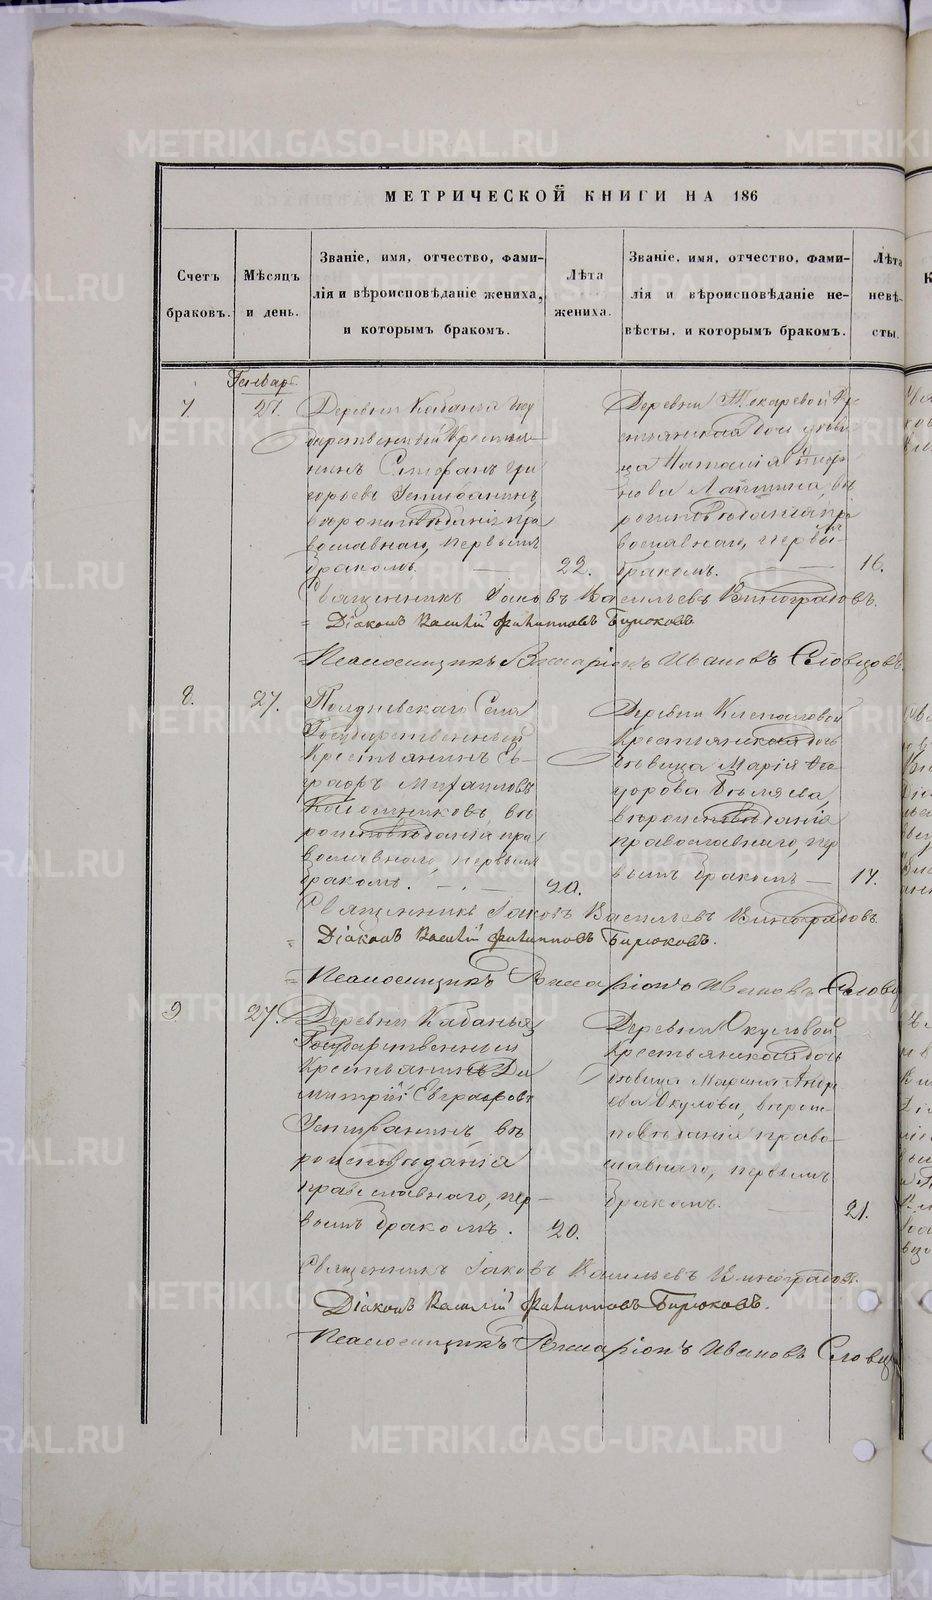 МЕТРИЧЕСКОЙ КНИГИ НА 186
Счетъ
браковъ.
Мѣсяцъ
и день.
Званіе, имя, отчество, фами-
лія и вѣроисповѣданіе жениха,
и которымъ бракомъ.
Лѣта
жениха.
Званіе, имя, отчество, фами-
лія и вѣроисповѣданіе не-
вѣсты, и которымъ бракомъ.
Лѣта
невѣ-
сты.
Генварь
7
27.
Деревни Кабанья Госу
дарственный Крестья-
нинъ Стефанъ Гри
горьевъ
вѣроисповѣданія пра
вославнаго, первымъ
бракомъ.
22.
Деревни Токаревой Кре
стьянская дочь дѣви
ца Наталія
нова вѣ
роисповѣданія пра
вославнаго, первымъ
бракомъ.
16.
Священникъ Іаковъ Васильевъ Виноградовъ.
Діаконъ Василій Филипповъ Бирюковъ
Псаломщикъ Виссаріонъ Ивановъ Словцовъ
8.
27.
Полдневскаго Села
Государственный
Крестьянинъ Ев-
графъ Михаиловъ
вѣ
роисповѣданія пра
вославнаго, первымъ
бракомъ.
20.
Деревни
Крестьянская дочь
дѣвица Марія Ѳео
дорова Бѣляева,
вѣроисповѣданія
православнаго, пер
вымъ бракомъ
17.
Священникъ Іаковъ Васильевъ Виноградовъ.
Діаконъ Василій Филипповъ Бирюковъ.
Псаломщикъ Виссаріонъ Ивановъ Словц
9
27.
Деревни Кабанья
Государственный
Крестьянинъ Ди
митрій Евграфовъ
вѣ
роисповѣданія
православнаго, пер-
вымъ бракомъ.
20.
Деревни Окуловой
Крестьянская дочь
дѣвица Марина Андре
ева Окулова, вѣроис-
повѣданія право-
славнаго, первымъ
бракомъ.
21.
Священникъ Іаковъ Васильевъ Виноградовъ.
Діаконъ Василій Филипповъ Бирюковъ.
Псаломщикъ Виссаріонъ Ивановъ Словц
METRIKI.GASO-URAL.RU